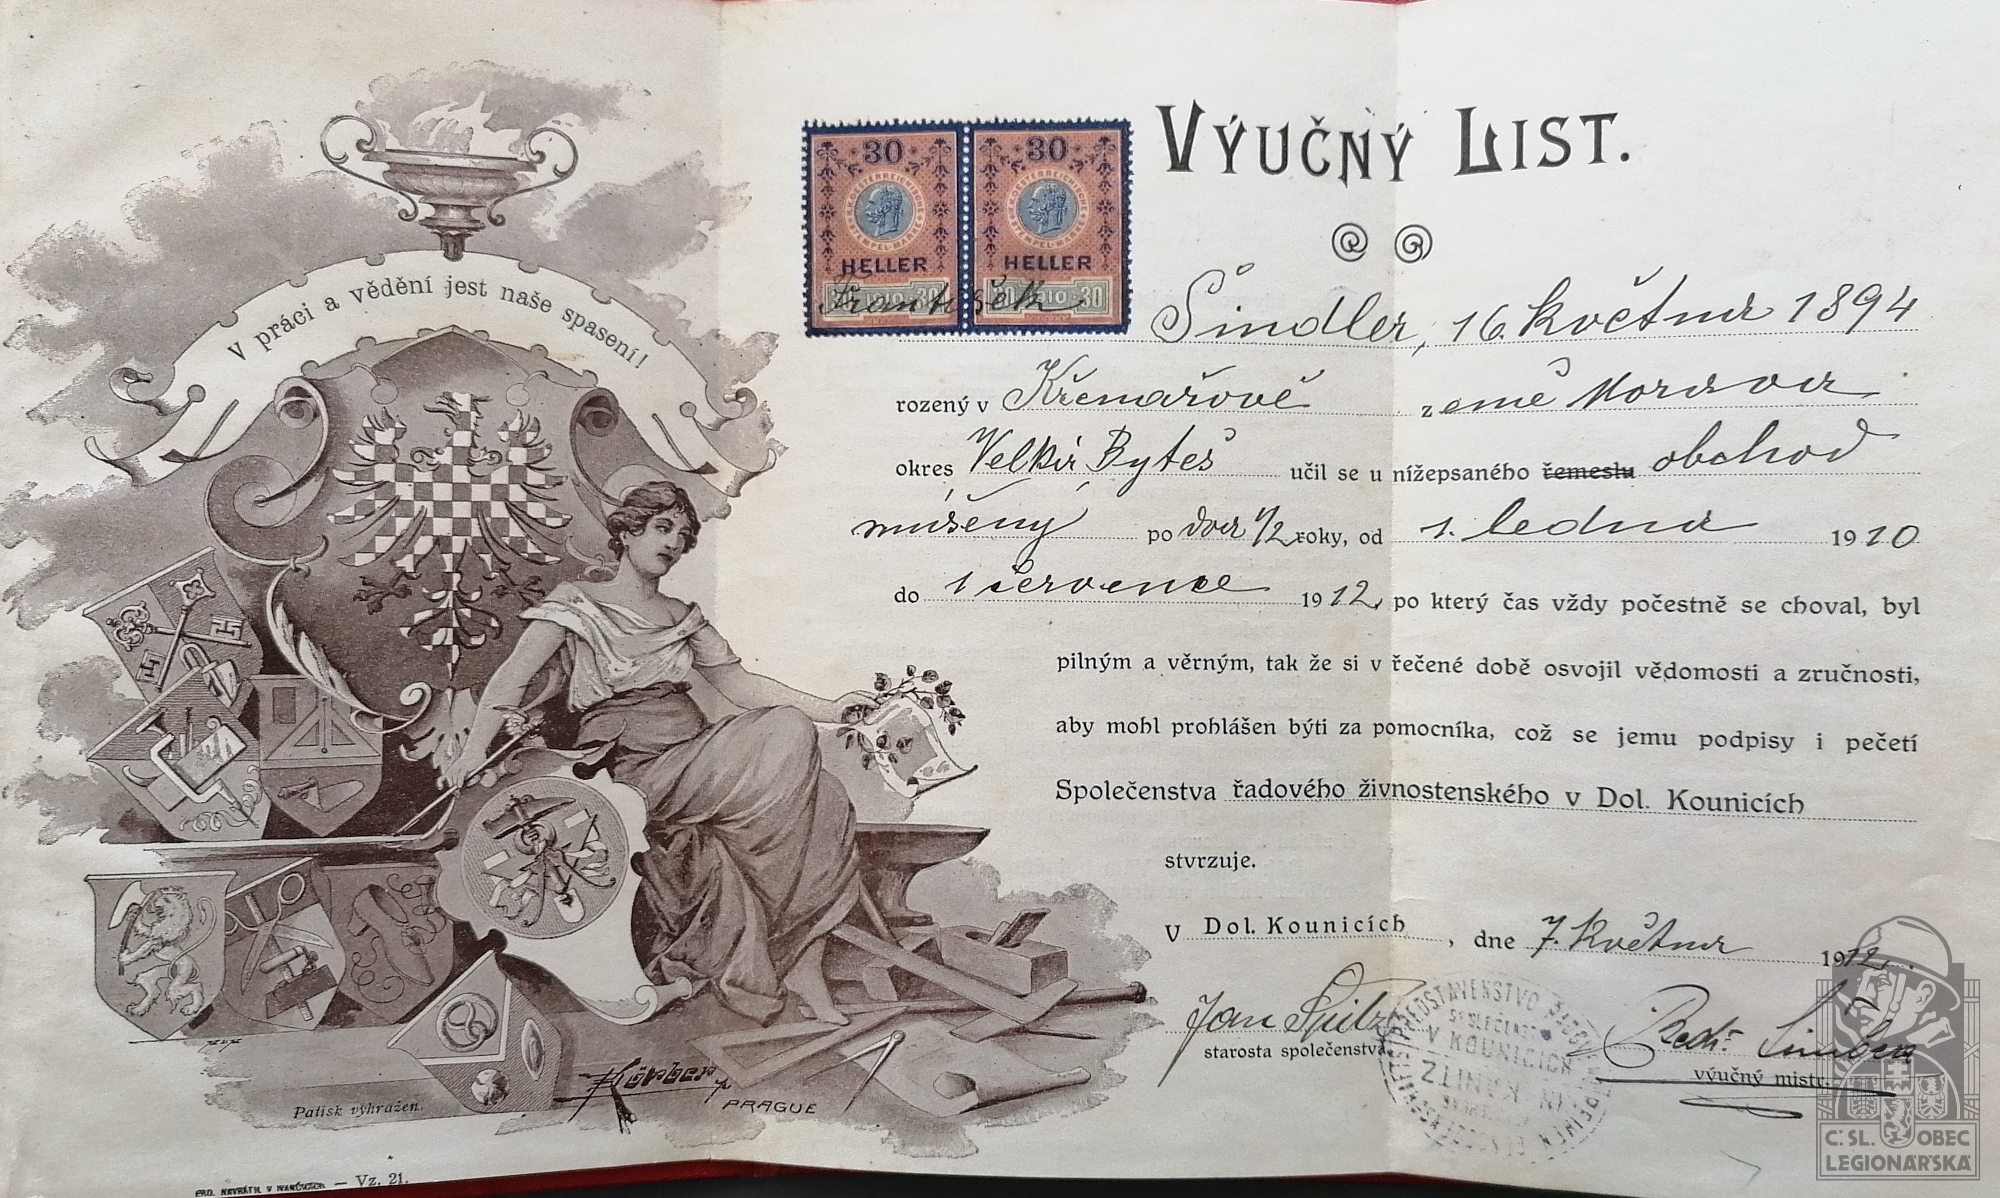 VÝUČNÝ LIST.
30 30
K.K. OESTERREICHISCHE STEMPEL-MARKE
HELLER HELLER
30 1910 30 30 1910 30
V práci a vědění jest naše spasení!
František Šindler, 16. května 1894
rozený v Křemařově země Morava
okres Velká Byteš učil se u nížepsaného řemeslu obchod
míšený po dva 1/2 roky, od 1. ledna 1910
do 1 července 1912, po který čas vždy počestně se choval, byl
pilným a věrným, tak že si v řečené době osvojil vědomosti a zručnosti,
aby mohl prohlášen býti za pomocníka, což se jemu podpisy i pečetí
Společenstva řadového živnostenského v Dol. Kounicích
stvrzuje.
V Dol. Kounicích, dne 7. května 1912.
Jan Špilz
starosta společenstva.
Bedř.
výučný mistr.
PŘEDSTAVENSTVO
V KOUNICÍCH
IN KANITZ
Körber
PRAGUE
Patisk výhražen.
NAVRÁTIL V IVANČICÍCH — Vz. 21.
Č.SL. OBEC
LEGIONÁŘSKÁ